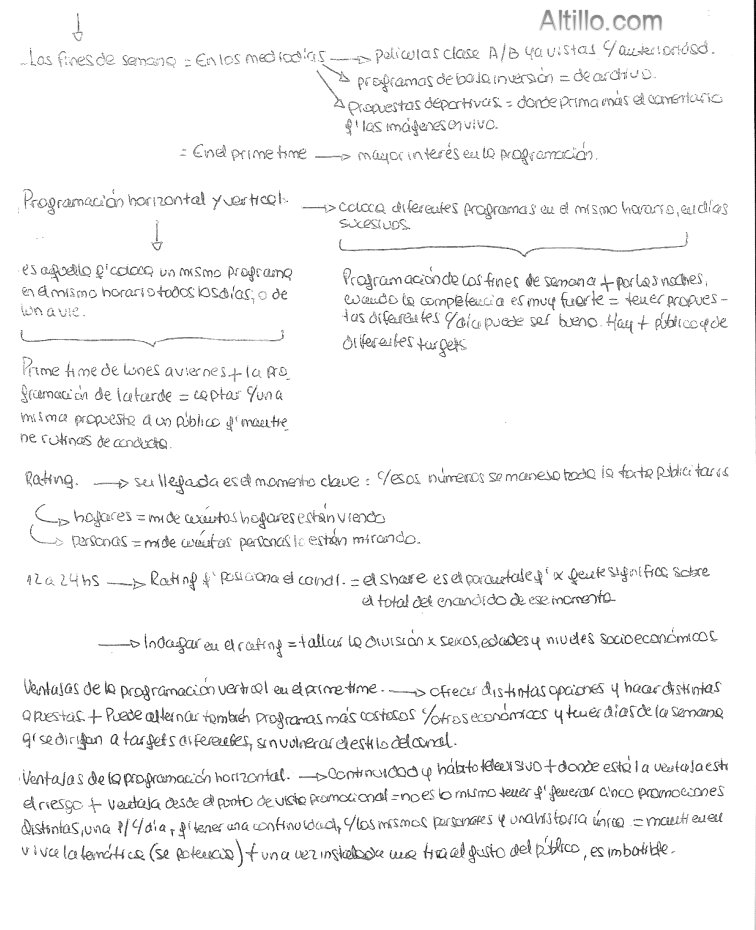 Altillo.com
- Los fines de semana = En los mediodías → películas clase A/B ya vistas c/ anterioridad.
→ programas de baja inversión = de archivo.
→ Propuestas deportivas = donde prima más el comentario
q' las imágenes en vivo.
= En el prime time → mayor interés en la programación.
Programación horizontal y vertical. → coloca diferentes programas en el mismo horario, en días
sucesivos.
es aquello q' coloca un mismo programa
en el mismo horario todos los días, o de
lun a vie.
Programación de los fines de semana + por las noches,
cuando la competencia es muy fuerte = tener propues-
tas diferentes c/día puede ser bueno. Hay + público y de
diferentes targets
Prime time de lunes a viernes + la pro
gramación de la tarde = captar c/una
misma propuesta a un público q' mantie
ne rutinas de conducta.
Rating. → su llegada es el momento clave: c/esos números se maneja toda la torta publicitaria
→ hogares = mide cuántos hogares están viendo
→ personas = mide cuántas personas lo están mirando.
12 a 24 hs → Rating q' posiciona el canal. = el share es el porcentaje q' x gente significa sobre
el total del encendido de ese momento
→ Indagar en el rating = tallar la división x sexos, edades y niveles socioeconómicos
Ventajas de la programación vertical en el prime time. → ofrecer distintas opciones y hacer distintas
apuestas. + Puede alternar también programas más costosos c/otros económicos y tener días de la semana
q' se dirijan a targets diferentes, sin vulnerar el estilo del canal.
Ventajas de la programación horizontal. → Continuidad y hábito televisivo + donde está la ventaja está
el riesgo + ventaja desde el punto de vista promocional = no es lo mismo tener q' generar cinco promociones
distintas, una p/c/día, q' tener una continuidad, c/los mismos personajes y una historia única = mantienen
viva la temática (se potencia) + una vez instalada una tira al gusto del público, es imbatible.